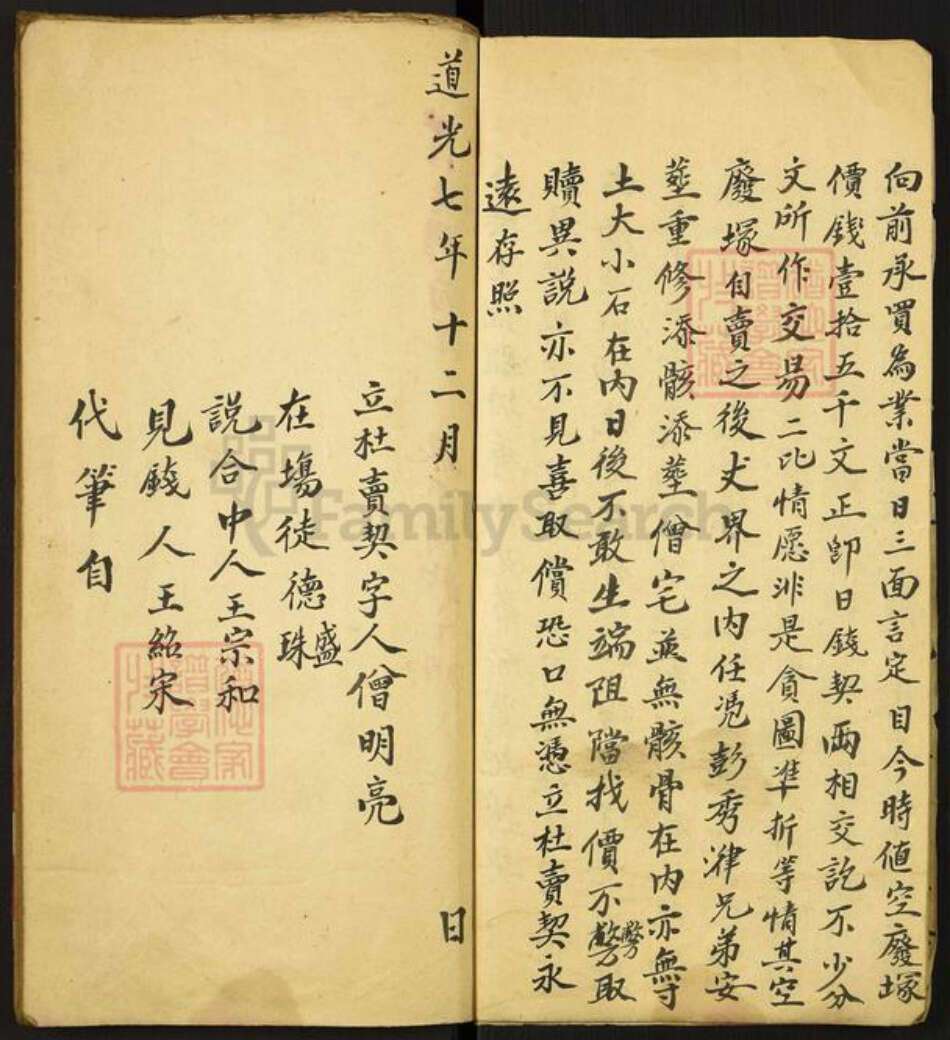 向前承買為業當日三面言定目今時值空廢塚
價錢壹拾五千文正卽日錢契兩相交訖不少分
文所作交易二比情愿非是貪圖準折等情其空
廢塚自賣之後丈界之內任憑彭秀津兄弟安
塟重修添骸添塟僧宅並無骸骨在內亦無寸
土大小石在內日後不敢生端阻擋找價不取
贖異說亦不見喜取償恐口無憑立杜賣契永
遠存照
道光七年十二月 日
立杜賣契字人僧明亮
在塲徒德盛珠
說合中人王宗和
見錢人王紹宋
代筆自
FamilySearch